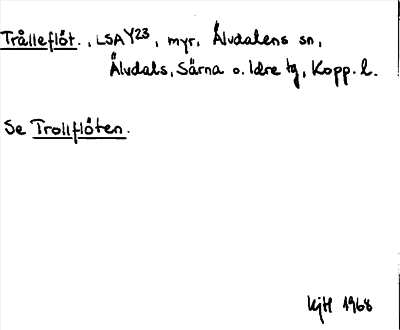 Trålleflöt., LSA Y23, myr, Älvdalens sn,
Älvdals, Särna o. Idre tg, Kopp. l.
Se Trollflöten.
KjH 1968